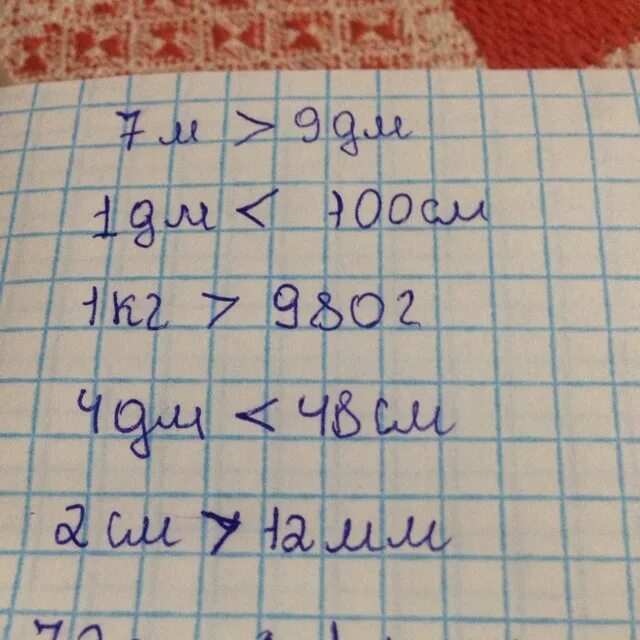 7м > 9дм
1дм < 100см
1кг > 980г
4дм < 48см
2см > 12мм